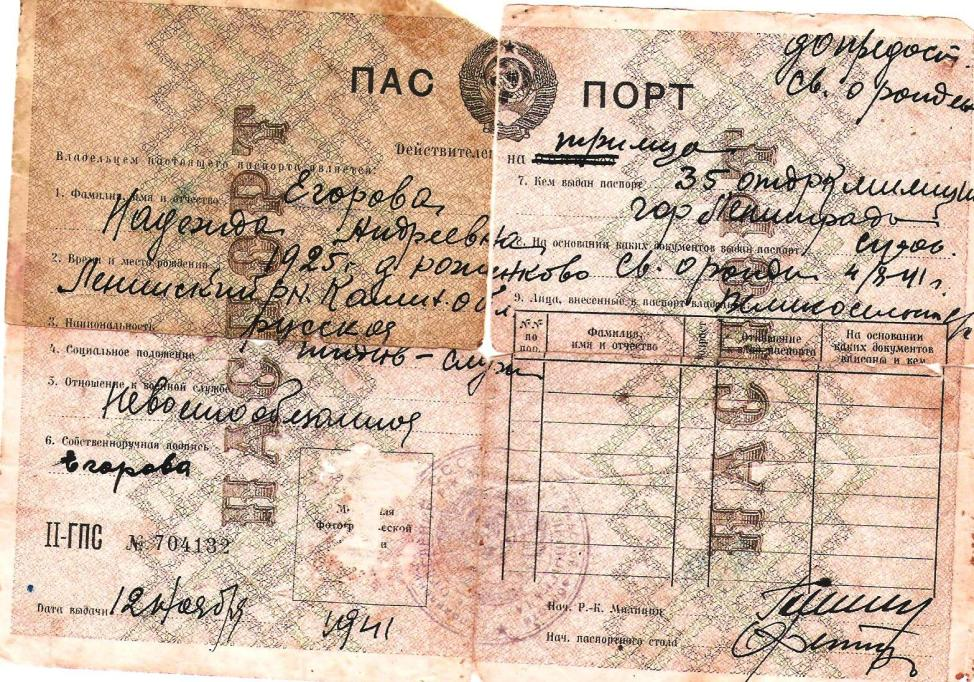 ПАСПОРТ
до предост.
св. о рожден
Действителен на три мца
Владельцем настоящего паспорта является:
1. Фамилия, имя и отчество Егорова
Надежда Андреевна
2. Время и место рождения 1925 г. д.
Ленинский рн.
3. Национальность русская
4. Социальное положение служ
5. Отношение к военной службе
Невоеннообязанная
6. Собственноручная подпись
Егорова
II-ГПС № 704132
Дата выдачи 12 ноября 1941
7. Кем выдан паспорт 35 отд Р К милиции
гор Ленинграда
8. На основании каких документов выдан паспорт
св. о рожден 4/
9. Лица, внесенные в паспорт владельца
№№ по пор.
Фамилия, имя и отчество
Отношение к влад. паспорта
На основании каких документов вписаны и кем
Нач. Р.-К. Милиции
Нач. паспортного стола
ПАСПОРТ
ПАСПОРТ